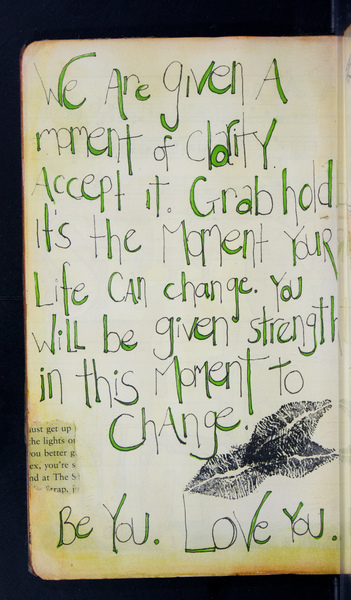 We Are given A
moment of Clarity.
Accept it. Grab hold
It's the Moment Your
Life Can change. You
will be given strength
in this Moment to
Change.
ust get up
the lights o
you better g
ex, you're s
nd at The S
Strap, i
Be You. Love You.